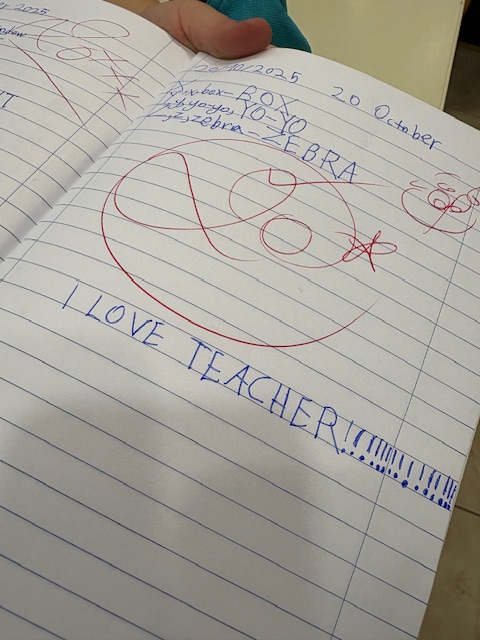 20/10/2025 20 October
x, box - BOX
y, yo-yo, YO-YO
z, zebra - ZEBRA
I LOVE TEACHER!!!!!!!!!!!!!!!!
2025